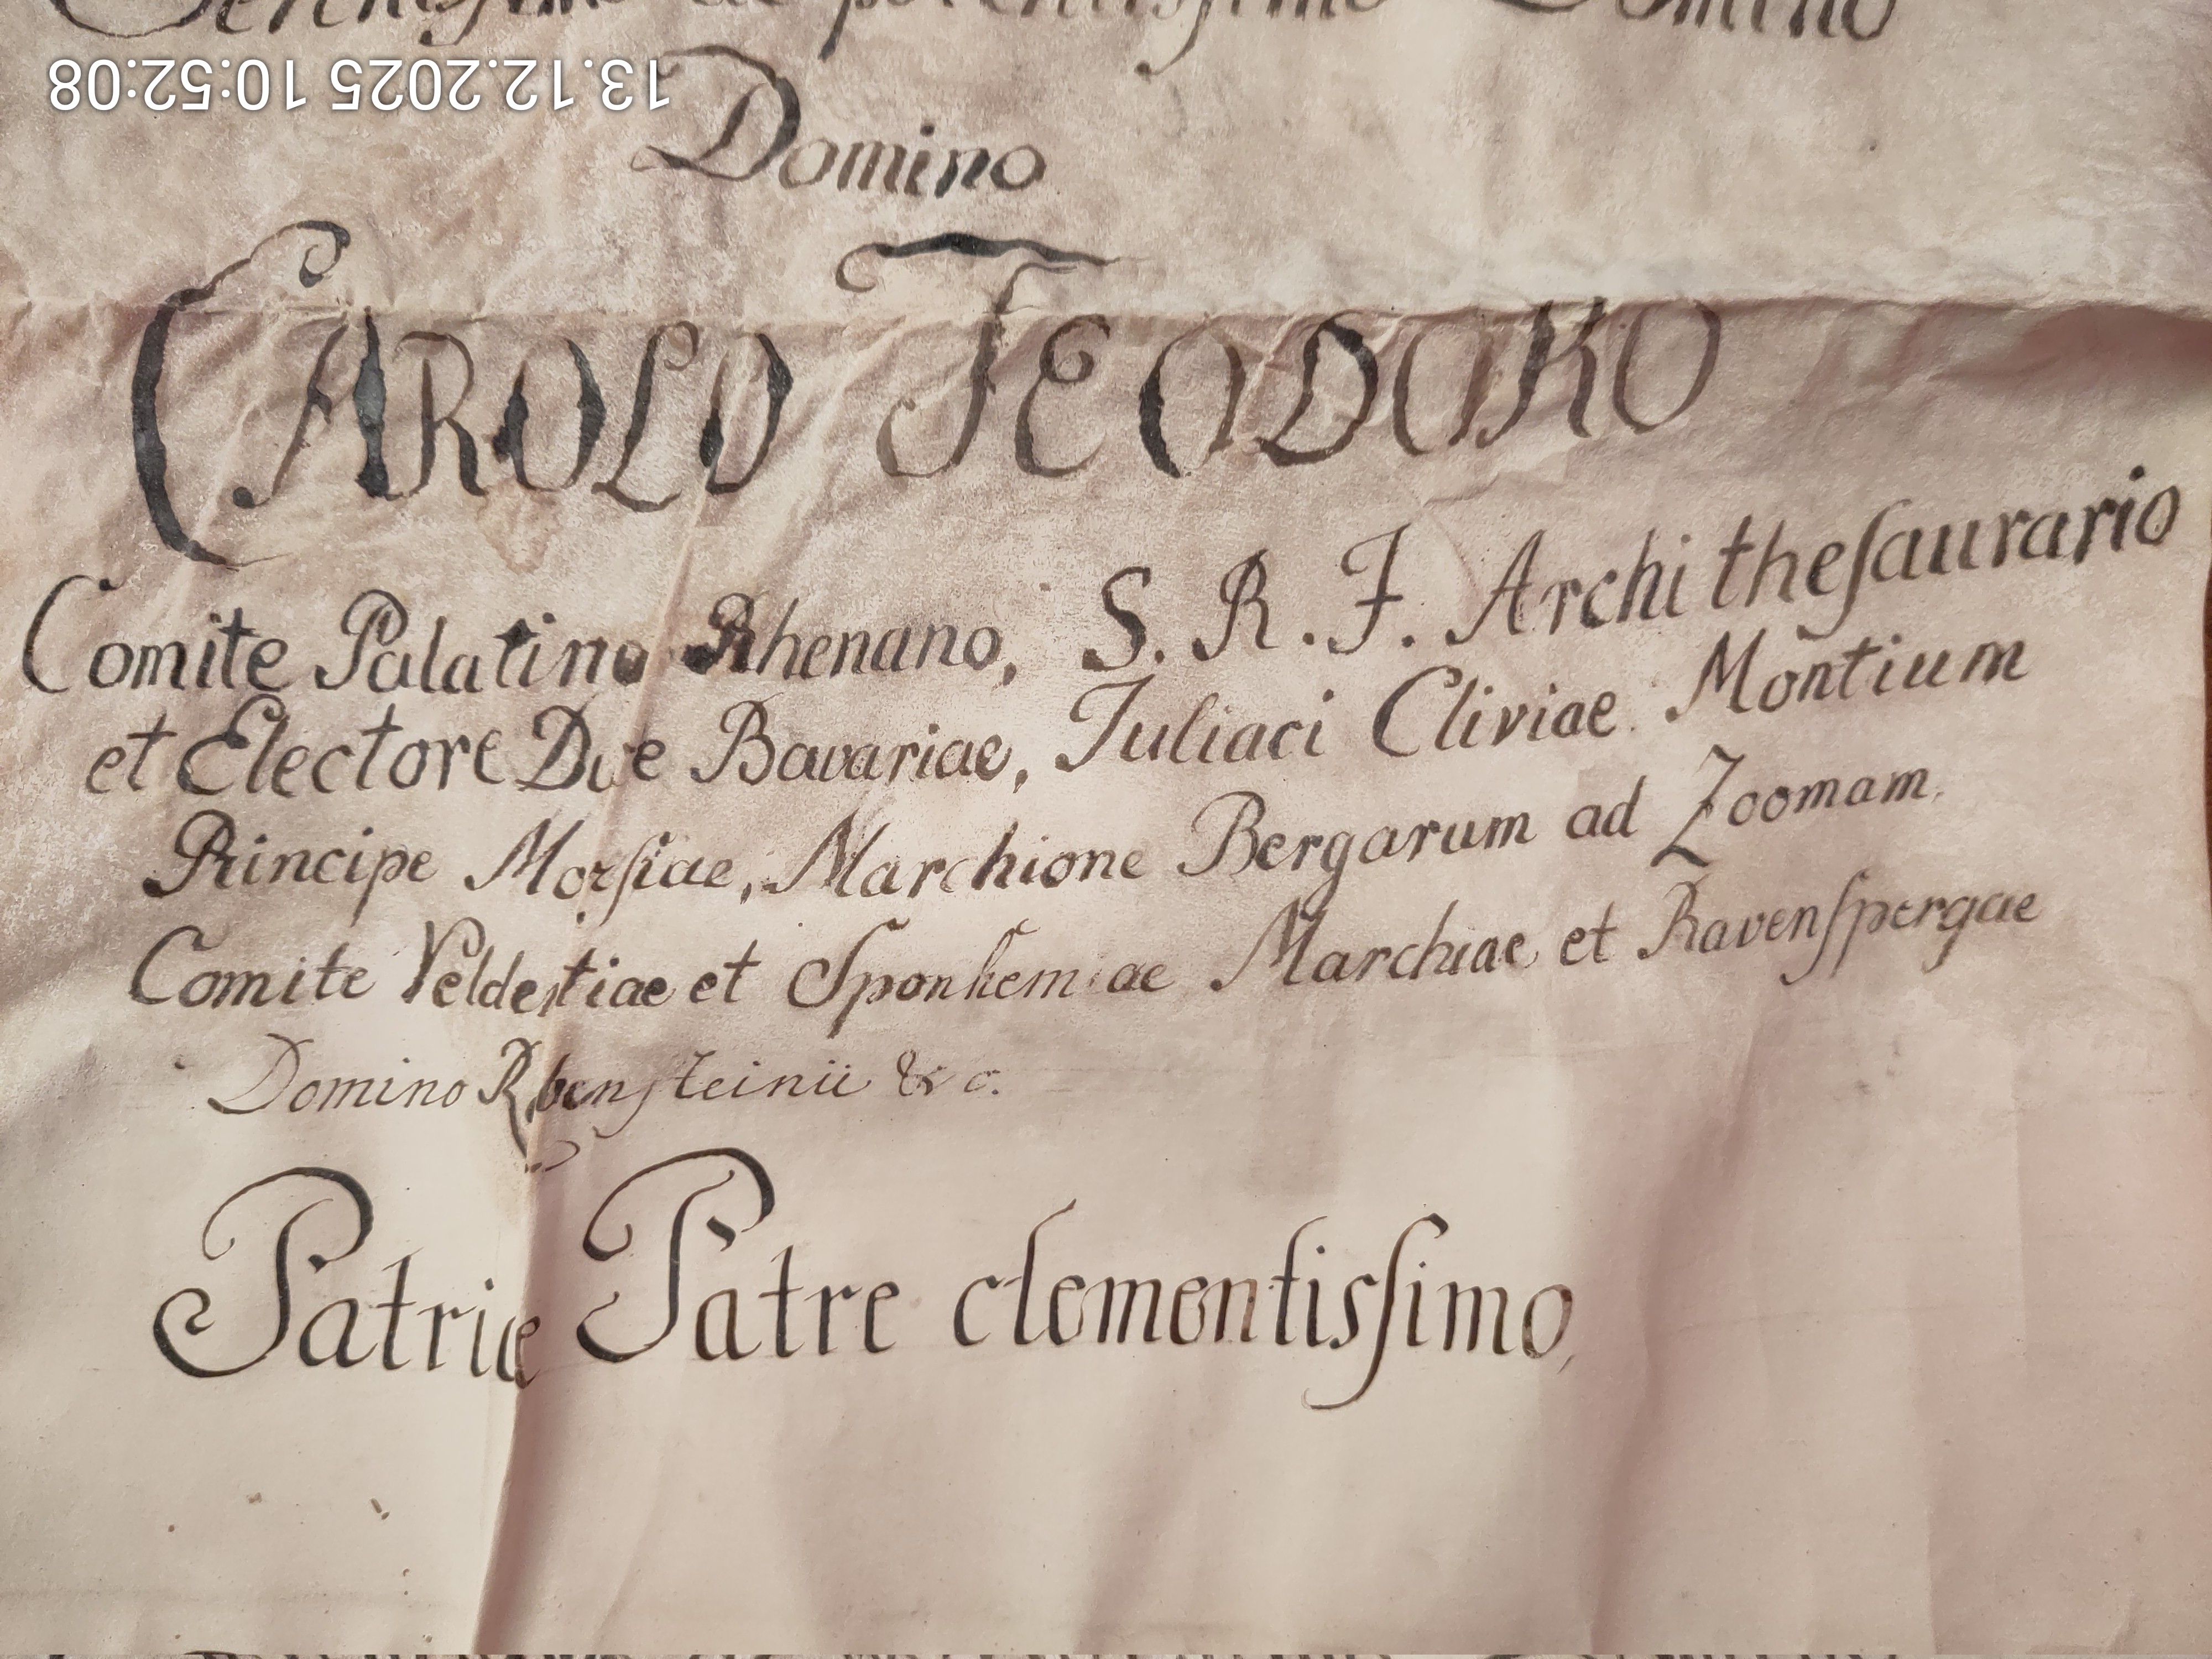 Serenissimo ac potentissimo Domino
13.12.2025 10:52:08
Domino
CAROLO TEODORO
Comite Palatino Rhenano, S. R. I. Archithesaurario
et Electore Duce Bavariae, Iuliaci Cliviae Montium
Principe Morsiae, Marchione Bergarum ad Zoomam.
Comite Veldentiae et Sponhemiae Marchiae et Ravenspergae
Domino &c.
Patriae Patre clementissimo,